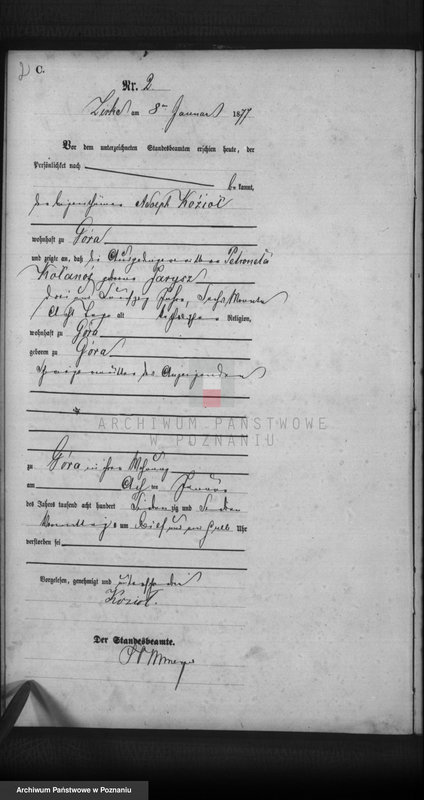 C.
Nr. 2
Zirke am 8ten Januar 1877
Vor dem unterzeichneten Standesbeamten erschien heute, der
Persönlichkeit nach
bekannt,
der Eigenthümer Adolph Kozioł
wohnhaft zu Góra
und zeigte an, daß die Petronela
geborene
drei und Jahre, sechs Monate
acht Tage alt katholischer Religion,
wohnhaft zu Góra
geboren zu Góra
Schwiegermutter des Anzeigenden
ARCHIWUM PAŃSTWOWE
W POZNANIU
zu Góra in ihrer Wohnung
am Acht ten Januar
des Jahres tausend acht hundert siebenzig und sieben
Vormittags um Uhr
verstorben sei
Vorgelesen, genehmigt und unterschrieben
Kozioł.
Der Standesbeamte.
Archiwum Państwowe w Poznaniu